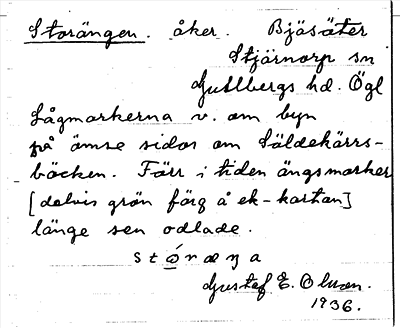 Storängen. åker. Bjäsäter
Stjärnorp sn
Gullbergs hd. Ögl
Lågmarkerna v. om byn
på ömse sidor om Säldekärrs-
bäcken. Förr i tiden ängsmarker
[delvis grön färg å ek-kartan]
länge sen odlade.
stóræŋa
Gustaf E. Olsson.
1936.